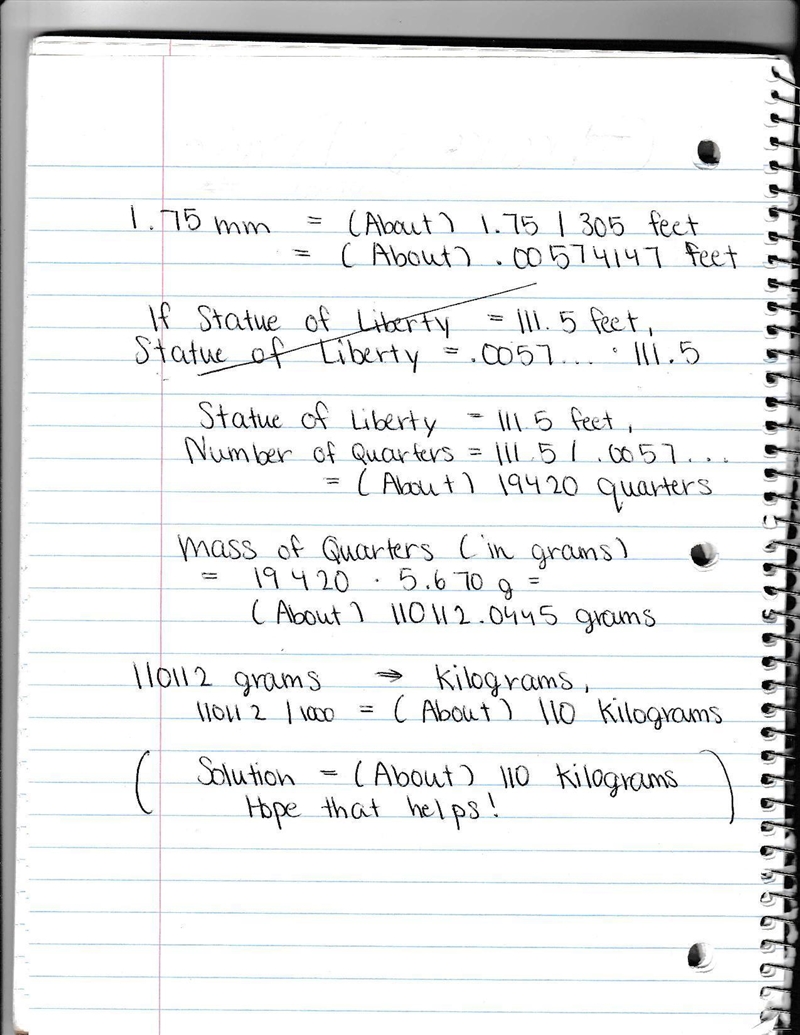 1.75 mm = (About) 1.75 / 305 feet
= (About) .00574147 feet
If Statue of Liberty = 111.5 feet,
Statue of Liberty = .0057... · 111.5
Statue of Liberty = 111.5 feet,
Number of Quarters = 111.5 / .0057...
= (About) 19420 quarters
Mass of Quarters (in grams)
= 19420 · 5.670 g =
(About) 110112.0445 grams
110112 grams → Kilograms,
110112 / 1000 = (About) 110 Kilograms
( Solution = (About) 110 kilograms
Hope that helps! )